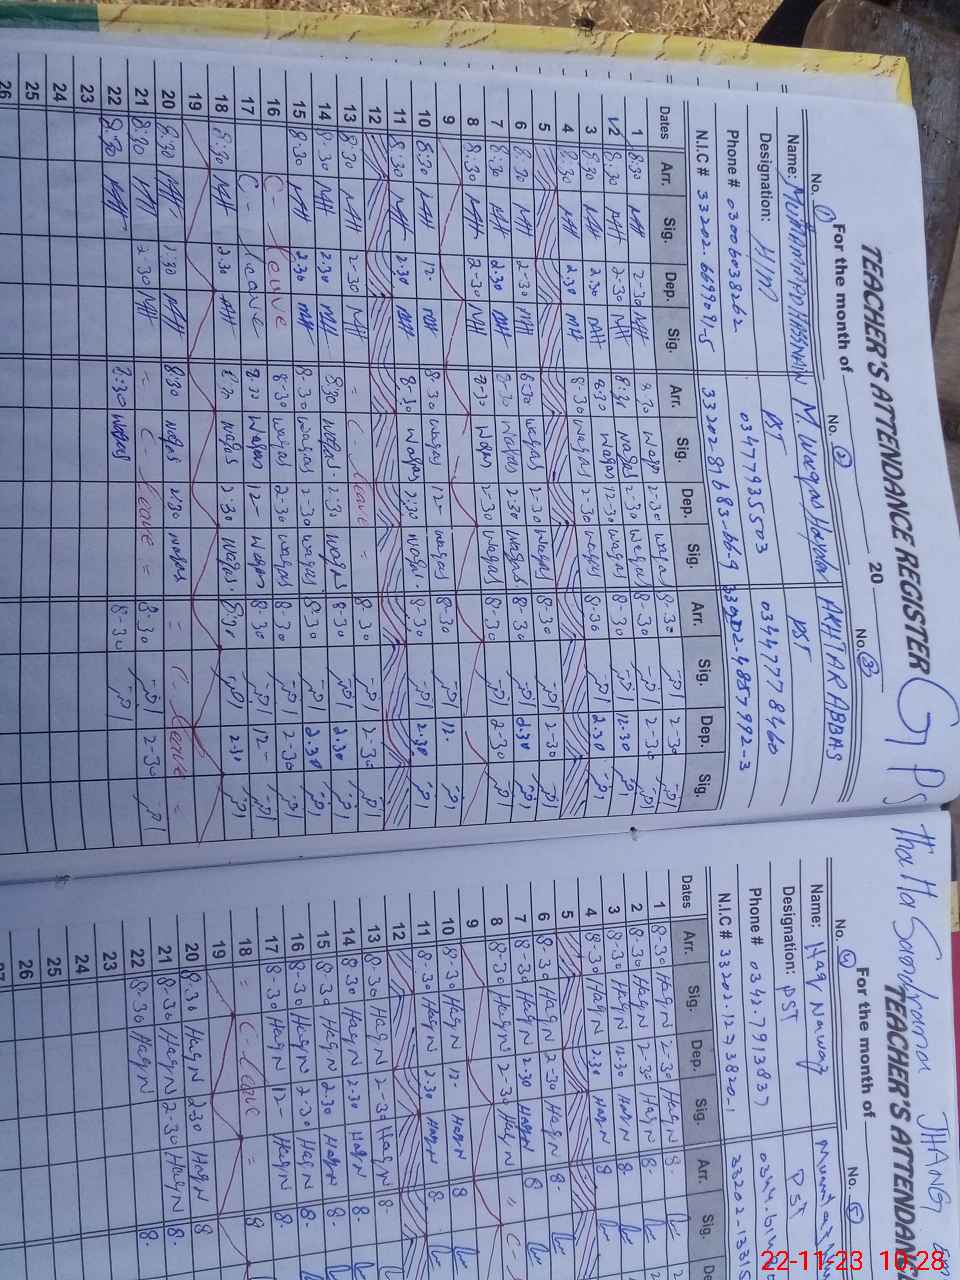 G Ps Tha Ha Sambrana JHANG
TEACHER'S ATTENDANCE REGISTER
For the month of 20
No. 1 No. 2 No. 3
Name: MUHAMMAD HASSNAIN M. Waqas Haydar AKHTAR ABBAS
Designation: H/M PST PST
Phone # 03006038262 03477935503 03447778460
N.I.C # 33202-6699091-5 33202-81683-66-9 33202-4857992-3
Dates Arr. Sig. Dep. Sig. Arr. Sig. Dep. Sig. Arr. Sig. Dep. Sig.
1 8.30 MH 2-30 MH 8.30 Waqas 2-30 Waqas 8-30 2-30
2 8.30 MH 2-30 MH 8:30 Waqas 2-30 Waqas 8-30 2-30
3 8.30 MH 2.30 MH 8.30 Waqas 12-30 Waqas 8-30 12.30
4 8.30 MH 2.30 MH 8-30 Waqas 2-30 Waqas 8-30 2.30
5
6 8.30 MH 2-30 MH 8.30 Waqas 2-30 Waqas 8-30 2-30
7 8.30 MH 2.30 MH 8.30 Waqas 2.30 Waqas 8-30 2.30
8 8.30 MH 2-30 MH 8-30 Waqas 2-30 Waqas 8-30 2-30
9
10 8.30 MH 12- MH 8-30 Waqas 12- Waqas 8-30 12-
11 8.30 MH 2.30 MH 8-30 Waqas 2.30 Waqas 8-30 2.30
12
13 8.30 MH 2-30 MH = C- leave = 8.30 2-30
14 8.30 MH 2.30 MH 8.30 Waqas 2:30 Waqas 8-30 2.30
15 8.30 MH 2.30 MH 8.30 Waqas 2-30 Waqas 8.30 2.30
16 C- leave 8-30 Waqas 2.30 Waqas 8-30 2-30
17 C- leave 8.30 Waqas 12- Waqas 8-30 12-
18 8.30 MH 2.30 MH 8.30 Waqas 2:30 Waqas 8.30 2.30
19
20 8.30 MH 2.30 MH 8.30 Waqas 2.30 Waqas = C- leave =
21 8.30 MH 2.30 MH = C- leave = 8.30 2-30
22 8.30 MH 8:30 Waqas 8-30
23
24
25
26
TEACHER'S ATTENDANC
For the month of
No. 4 No. 5
Name: Haq Nawaz
Designation: PST PST
Phone # 0342-7913837
N.I.C # 33202-1273820-1 33202-13315
Dates Arr. Sig. Dep. Sig. Arr. Sig. De
1 8.30 HaqN 2-30 HaqN 8-
2 8-30 HaqN 2-30 HaqN 8-
3 8-30 HaqN 12-30 HaqN 8-
4 8-30 HaqN 2.30 HaqN 8
5
6 8.30 HaqN 2-30 HaqN 8-
7 8-30 HaqN 2.30 HaqN 8
8 8-30 HaqN 2-30 HaqN " C-
9
10 8-30 HaqN 12- HaqN 8
11 8.30 HaqN 2.30 HaqN 8-
12
13 8-30 HaqN 2-30 HaqN 8-
14 8-30 HaqN 2-30 HaqN 8-
15 8.30 HaqN 2-30 HaqN 8-
16 8-30 HaqN 2-30 HaqN 8-
17 8-30 HaqN 12- HaqN 8
18 = C- leave =
19
20 8.30 HaqN 2.30 HaqN 8
21 8.30 HaqN 2-30 HaqN 8-
22 8.30 HaqN
23
24
25
26
27
22-11-23 10:28